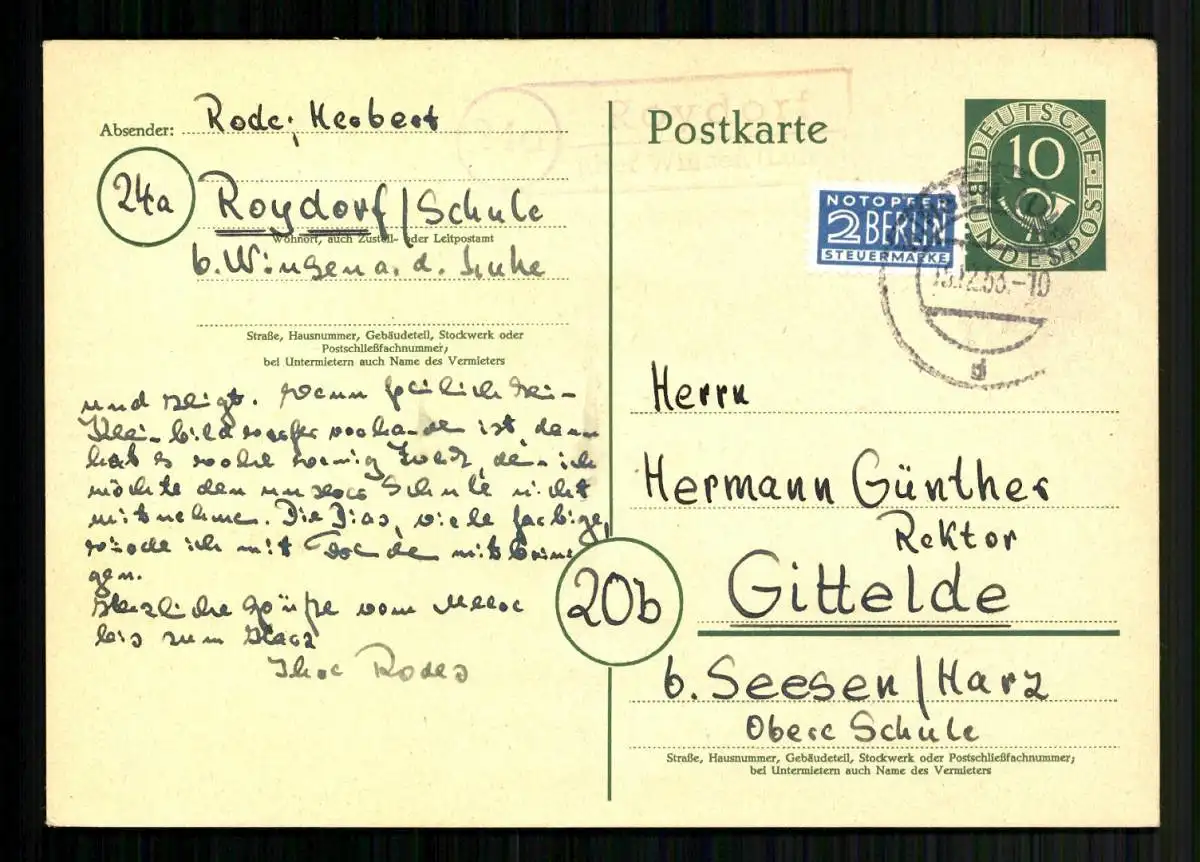 Absender: Rode, Herbert
24a
Roydorf/Schule
Wohnort, auch Zustell- oder Leitpostamt
b. Winsen a. d. Luhe
Straße, Hausnummer, Gebäudeteil, Stockwerk oder
Postschließfachnummer;
bei Untermietern auch Name des Vermieters
und zeigt. Wenn freilich kein
Klein-bildwerfer vorhanden ist, dann
hat es wohl wenig Zweck, denn ich
möchte den unserer Schule nicht
mitnehmen. Die Dias, viele farbige,
würde ich mit Freuden mitbrin-
gen.
Herzliche Grüße vom Meer
bis zum Harz
Ihre Rodes
Postkarte
DEUTSCHE BUNDESPOST
10
NOTOPFER
2 BERLIN
STEUERMARKE
12.53.-10
Herrn
Hermann Günther
Rektor
20b
Gittelde
b. Seesen/Harz
Obere Schule
Straße, Hausnummer, Gebäudeteil, Stockwerk oder Postschließfachnummer;
bei Untermietern auch Name des Vermieters